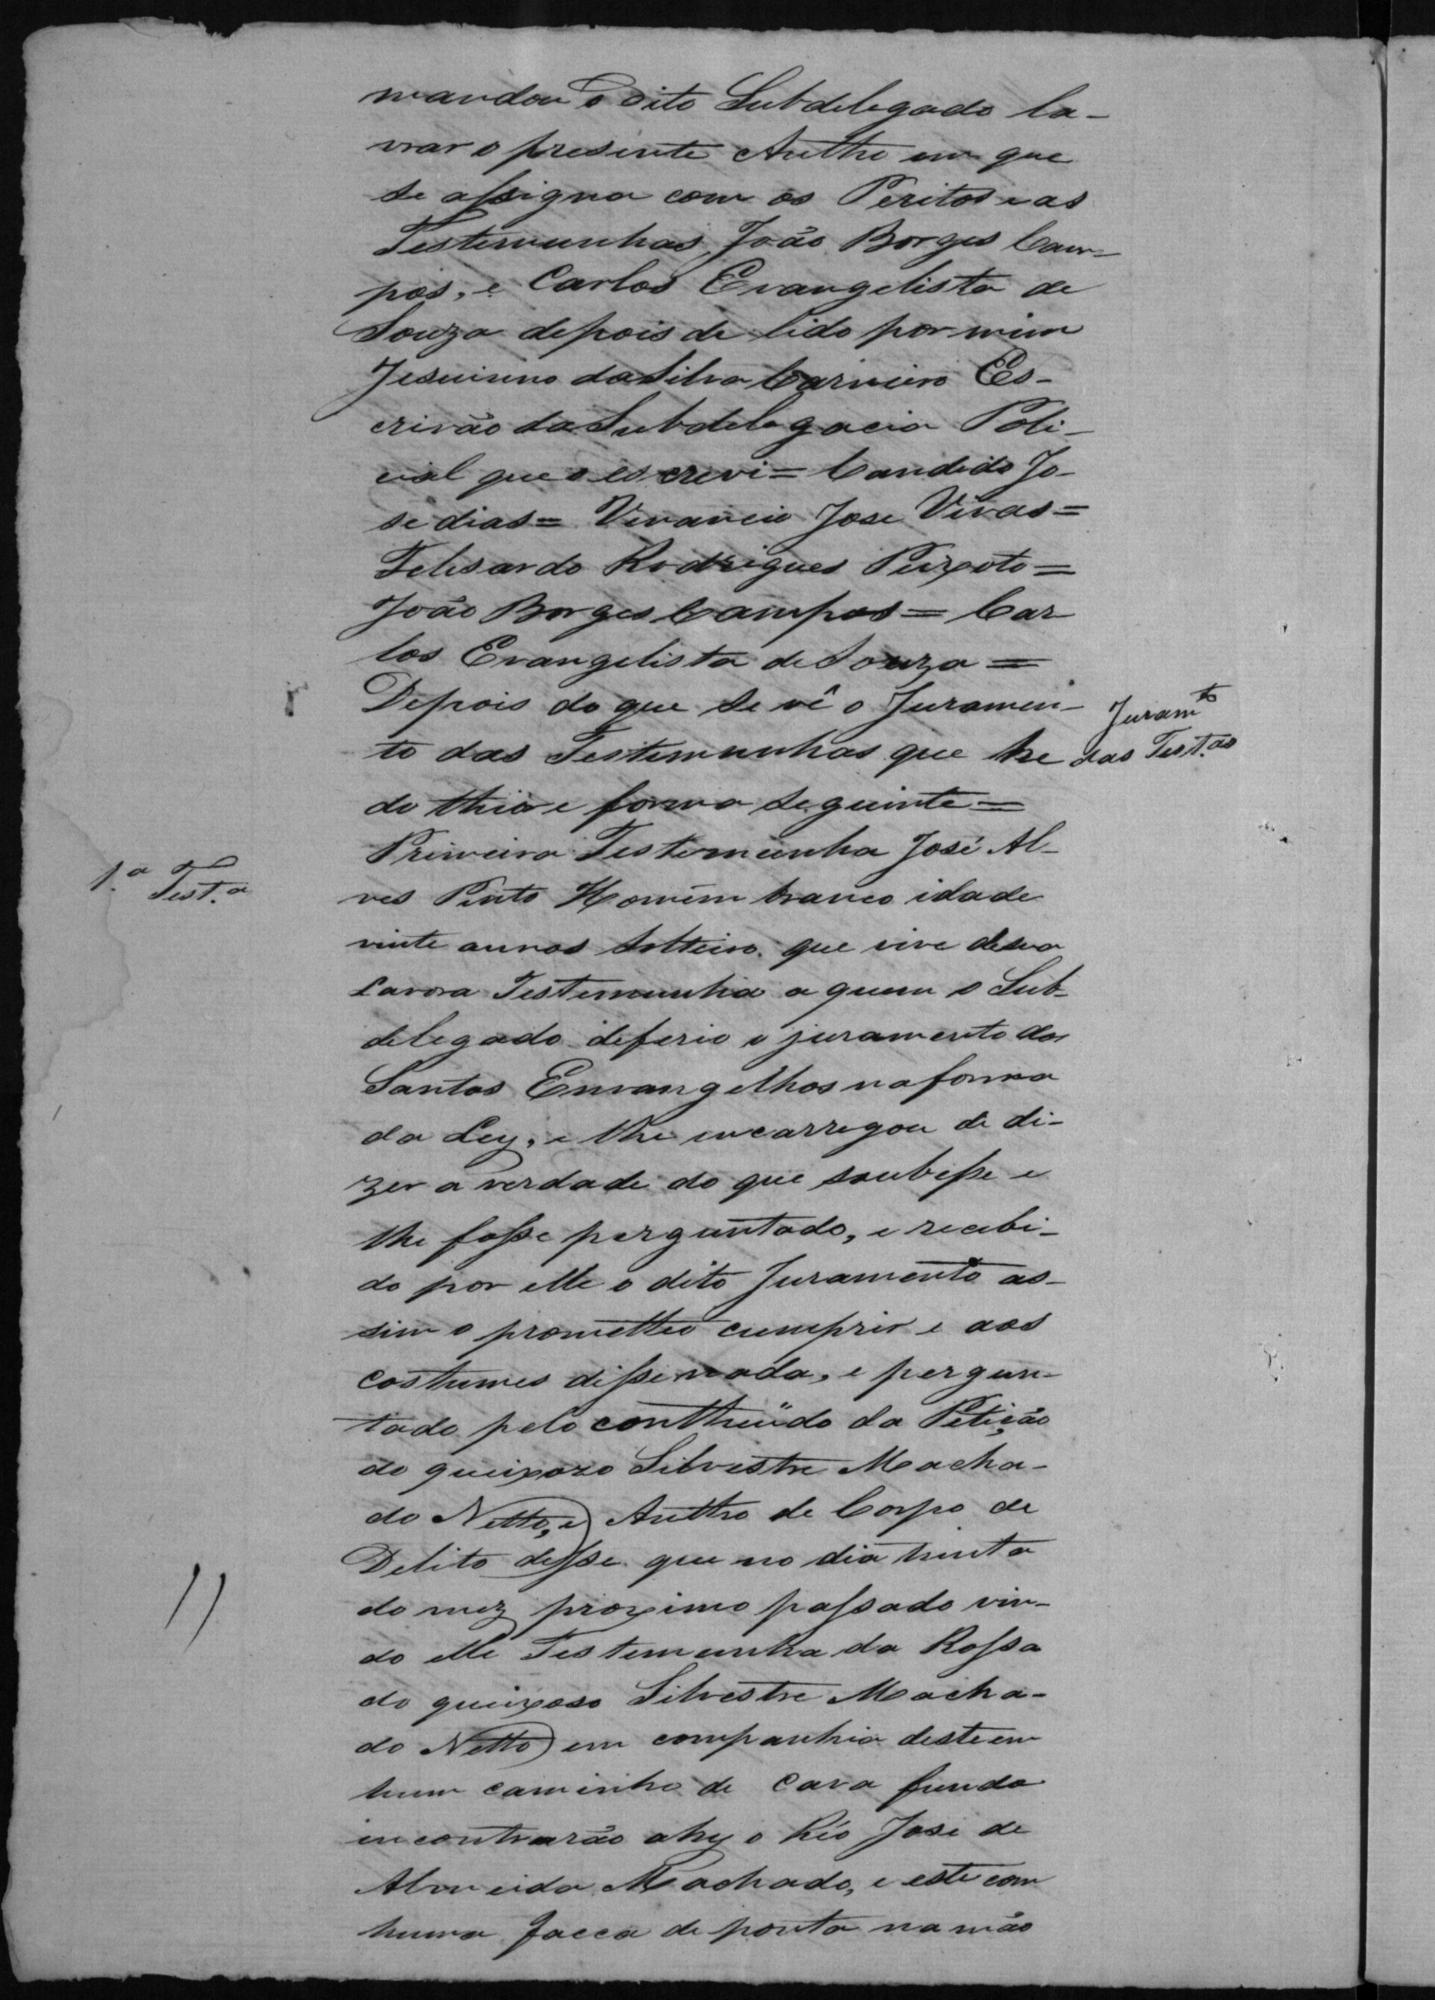 mandou o dito Subdelegado la-
vrar o presente Autho em que
se assigna com os Peritos e as
Testemunhas, João Borges Cam-
pos, e Carlos Evangelista de
Souza depois de lido por mim
Jesuino da Silva Carneiro Es-
crivão da Subdelegacia Poli-
cial que o escrevi = Candido Jo-
se dias = Venancio Jose Vivas =
Felisardo Rodrigues Peixoto =
João Borges Campos = Car
los Evangelista de Souza =
Depois do que se vê o Juramen-
Juram.to
to das Testemunhas que he
das Test.as
do thior e forma seguinte =
Primeira Testemunha José Al-
1.a Test.a
ves Pinto Homem branco idade
vinte annos solteiro que vive de sua
lavora Testemunha a quem o Sub-
delegado deferio o juramento dos
Santos Envangelhos na forma
da Ley, e lhe encarregou de di-
zer a verdade do que soubesse e
lhe fosse perguntado, e recebi-
do por elle o dito Juramento as-
sim o prometteo cumprir e aos
costumes disse nada, e pergun-
tado pelo conthiúdo da Petição
do queixozo Silvestre Macha-
do Netto, e Autho de Corpo de
Delito disse que no dia trinta
do mez proximo passado vin-
do elle Testemunha da Rossa
do queixoso Silvestre Macha-
do Netto em companhia deste em
hum caminho de cava funda
incontrarão ahy o Réo Jose de
Almeida Machado, e este com
huma facca de ponta na mão